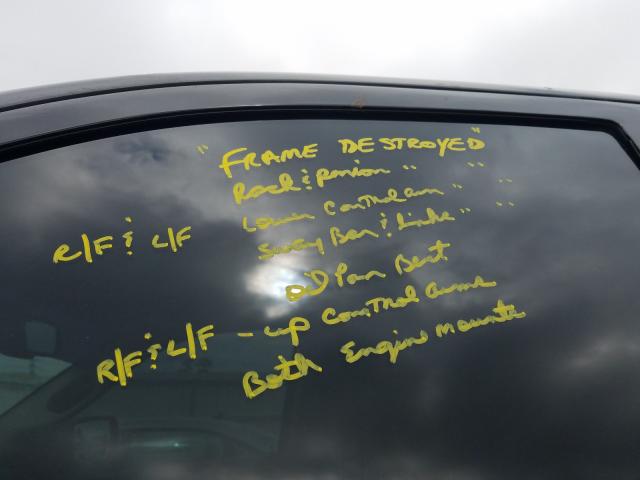 "FRAME DESTROYED"
Rack & pinion " "
R/F & L/F Lower Control arm " "
Sway Bar & Links " "
oil Pan Bent
R/F & L/F - up Control arms
Both Engine mounts